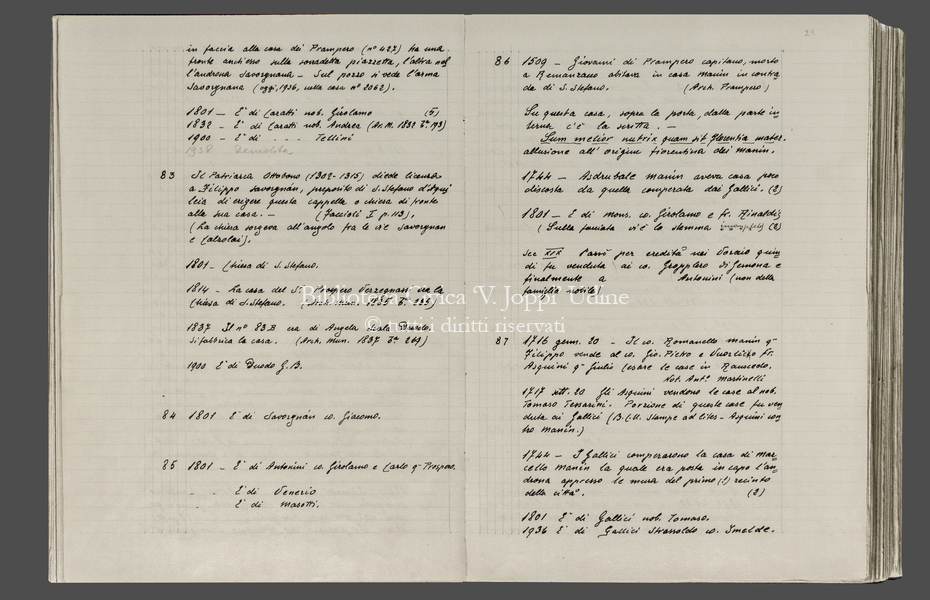 in faccia alla casa dei Prampero (n° 427) ha una
fronte anch'esso sulla sonadetta piazzetta, l'altra nel
l'androna Savorgnana - Sul pozzo si vede l'arma
Savorgnana (oggi, 1936, nella casa n° 2062).
1801 - E' di Caratti nob. Girolamo (5)
1832 - E' di Caratti nob. Andrea (Ar. M. 1832
1900 - E' di - - Tellini
1938 Demolita
83 Il Patriarca Ottobono (1302-1315) diede licenza
a Filippo Savorgnán, preposito di S. Stefano d'Aqui
leia di erigere questa cappella o chiesa di fronte
alla sua casa. - (Faccioli I p. 113).
(La chiesa sorgeva all'angolo fra le vie Savorgnan
e Calzolai).
1801 - Chiesa di S. Stefano.
1814 - La casa del Verzegnassi era la
Chiesa di S. Stefano. (Arch. Mun.
1837 Il n° 83.B era di Angela Duodo.
Si fabbrica la casa. (Arch. Mun. 1837 269)
1900 E' di Duodo G.B.
84 1801 E' di Savorgnán co. Giacomo.
85 1801 - E' di Antonini co. Girolamo e Carlo q- Prospero.
E' di Venerio
E' di Masotti.
29
86 1509 - Giovanni di Prampero capitano, morto
a Remanzano abitava in casa Manin in contra
da di S. Stefano. (Arch. Prampero)
Su questa casa, sopra la porta dalla parte in
terna c'è la scritta. -
Sum melior nutrix quam sit Florentia mater.
allusione all'origine fiorentina dei Manin.
1744 - Asdrubale Manin aveva casa poco
discosta da quella comperata dai Gallici. (2)
1801 - E di mons. co. Girolamo e fr. Rinaldis
(Sulla facciata vi è lo stemma (2)
Sec XIX Passò per eredità nei Voraio quin
di fu venduta ai co. Groppler di Gemona e
finalmente a Antonini (non della
famiglia nobile)
87 1716 genn. 20 - Il co. Romanello Manin q-
Filippo vende al co. Gio. Pietro e fr.
Asquini q- Giulio Cesare le case in Rauscedo.
Not. Ant° Martinelli
1717 sett. 20 Gli Asquini vendono le case al nob.
Tomaso Tessarini. Porzione di queste case fu ven
duta ai Gallici (B.C.U. Stampe ad lites - Asquini con
tro Manin.)
1744 - I Gallici comperarono la casa di Mar
cello Manin la quale era posta in capo l'an
drona appresso le mura del primo (!) recinto
della città. (2)
1801 E' di Gallici nob. Tomaso.
1936 E' di Gallici Strassoldo co. Imelde.
Biblioteca Civica "V. Joppi" Udine
© tutti i diritti riservati